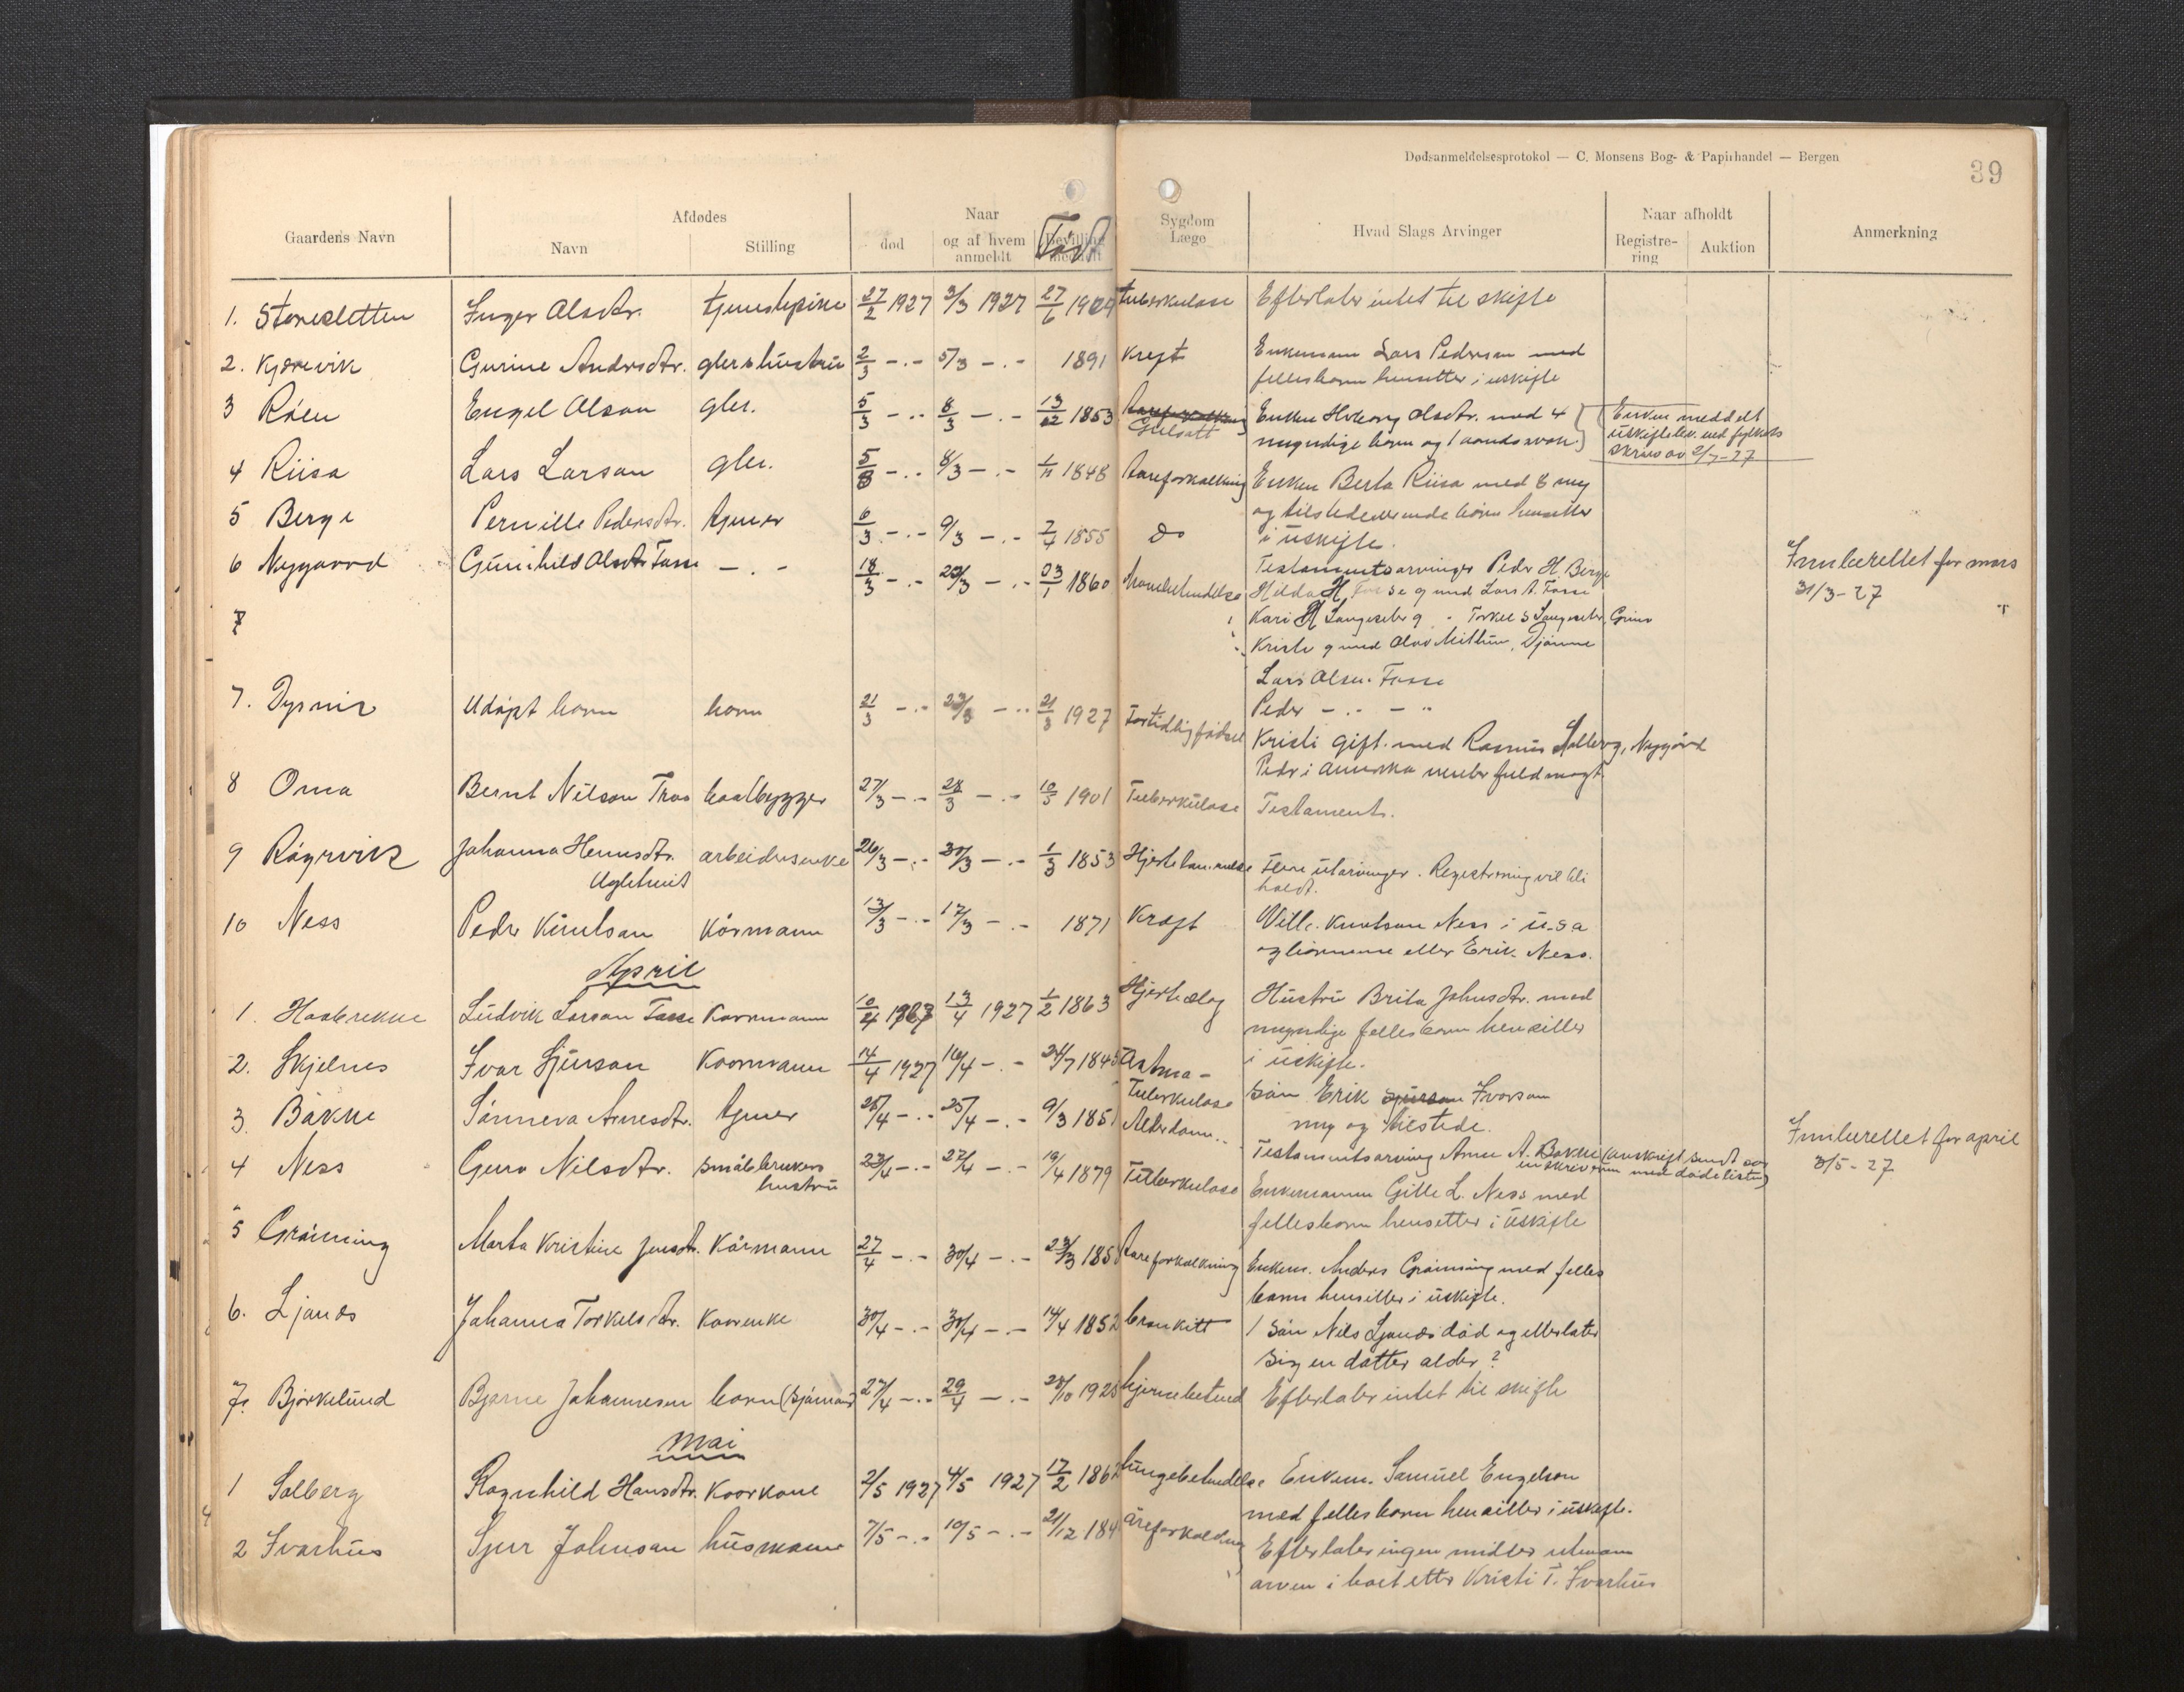 Dødsanmeldelsesprotokol — C. Monsens Bog- & Papirhandel — Bergen
39
Gaardens Navn
Afdødes
Navn
Stilling
Naar
død
og af hvem anmeldt
Bevilling meddelt
Født
Sygdom
Læge
Hvad Slags Arvinger
Naar afholdt
Registre-
ring
Auktion
Anmerkning
1. Storesletten Inger Olsdtr. tjenestepike 27/2 1927 3/3 1927 27/6 1904 tuberkulose Efterlater intet til skifte
2. Kjerevik Gurine Andersdtr. gbr.s hustru 2/3 -.- 5/3 -.- 1891 Kreft Enkemann Lars Pedersen med
fellesborn hensetter i uskifte
3 Röen Engel Olson gbr. 5/3 -.- 8/3 -.- 13/12 1853 Aareforkalkning Gulsott Enken Ovborg Olsdtr. med 4
myndige born og 1 aandssvak.
Enken meddelt
uskiftebev. ved fylkets
skriv av 2/7-27
4 Riisa Lars Larson gbr. 5/3 -.- 8/3 -.- 1/11 1848 Aareforkalkning Enken Berta Riisa med 8 myn
og tilstedeværende börn hensetter
i uskifte.
5 Berge Pernille Pedersdtr. tjener 6/3 -.- 9/3 -.- 7/4 1855 do
6 Nygaard Gunhild Olsdtr Fosse -.- 18/3 -.- 22/3 -.- 03/1 1860
Testamentsarvinger Peder H. Berge
Hilda H Fosse g med Lars A. Fosse
Kari H Langeseter g - Torkel S Langeseter, Grimo
Kristi g med Olav Mithun, Djönne
Lars Olsen Fosse
Peder -.- - "
Kristi gift. med Rasmus Solberg, Nygård
Peder i Amerika under fuldmagt
Innberettet for mars
31/3-27
7
7. Dysvik Udöpt barn barn 21/3 -.- 23/3 -.- 21/3 1927 For tidlig födsel
8 Oma Bernt Nilson Traa baatbygger 27/3 -.- 28/3 -.- 10/5 1901 Tuberkulose Testament.
9 Rögrvik Johanna Hennsdtr. Uglehus arbeidersenke 26/3 -.- 30/3 -.- 1/3 1853 Hjertelammelse Flere utarvinger. Registrering vil bli
holdt.
10 Ness Peder Knutson Kårmann 13/3 -.- 17/3 -.- 1871 Kreft Will. Knutson Ness i U.S.A
og barnene etter Erik Ness.
April
1. Haabrekke Ludvik Larson Fosse Kaarmann 10/4 1927 13/4 1927 1/2 1863 Hjerteslag Hustru Brita Johnsdtr. med
myndige fellesbarn hensitter
i uskifte.
2. Skjelnes Ivar Sjurson Kaarmann 14/4 1927 16/4 -.- 24/7 1845 Astma-
Tuberkulose Sön Erik Sjurson Ivarson
myn og tilstede.
3. Bakke Sönneva Arnesdtr. tjener 25/4 -.- 25/4 -.- 9/3 1851 Alderdom
Testamentsarving Arne A. Bakke (avskrift sendt sor
enskriveren med dödslisten)
Innberettet for april
3/5-27
4 Ness Guro Nilsdtr. småbrukers hustru 23/4 -.- 27/4 -.- 19/4 1879 Tuberkulose Enkemann Gitle L. Ness med
fellesborn hensetter i uskifte
5 Gröining Marta Kristine Jensdtr. Kårmann 27/4 -.- 30/4 -.- 23/3 185 Aareforkalkning Enkem. Anders Gröining med felles
barn hensitter i uskifte.
6. Ljones Johanna Torkelsdtr. Kaarenke 30/4 -.- 30/4 -.- 14/4 1852 bronkitt 1 Sön Nils Ljones död og etterlater
sig en datter alder?
7. Björkelund Bjarne Johannesen barn (sjömann) 27/4 -.- 29/4 -.- 28/10 1925 hjernebetend Efterlater intet til skifte
Mai
1 Solberg Ragnhild Hansdtr. Kaarkone 2/5 1927 4/5 1927 17/2 1862 lungebetendelse Enkem. Samuel Engelson
med fellesbarn hensitter i uskifte.
2 Ivarhus Sjur Johnson husmann 7/5 -.- 10/5 -.- 21/12 184 åreforkalkning Efterlater ingen midler utenom
arven i boet etter Kristi T. Ivarhus